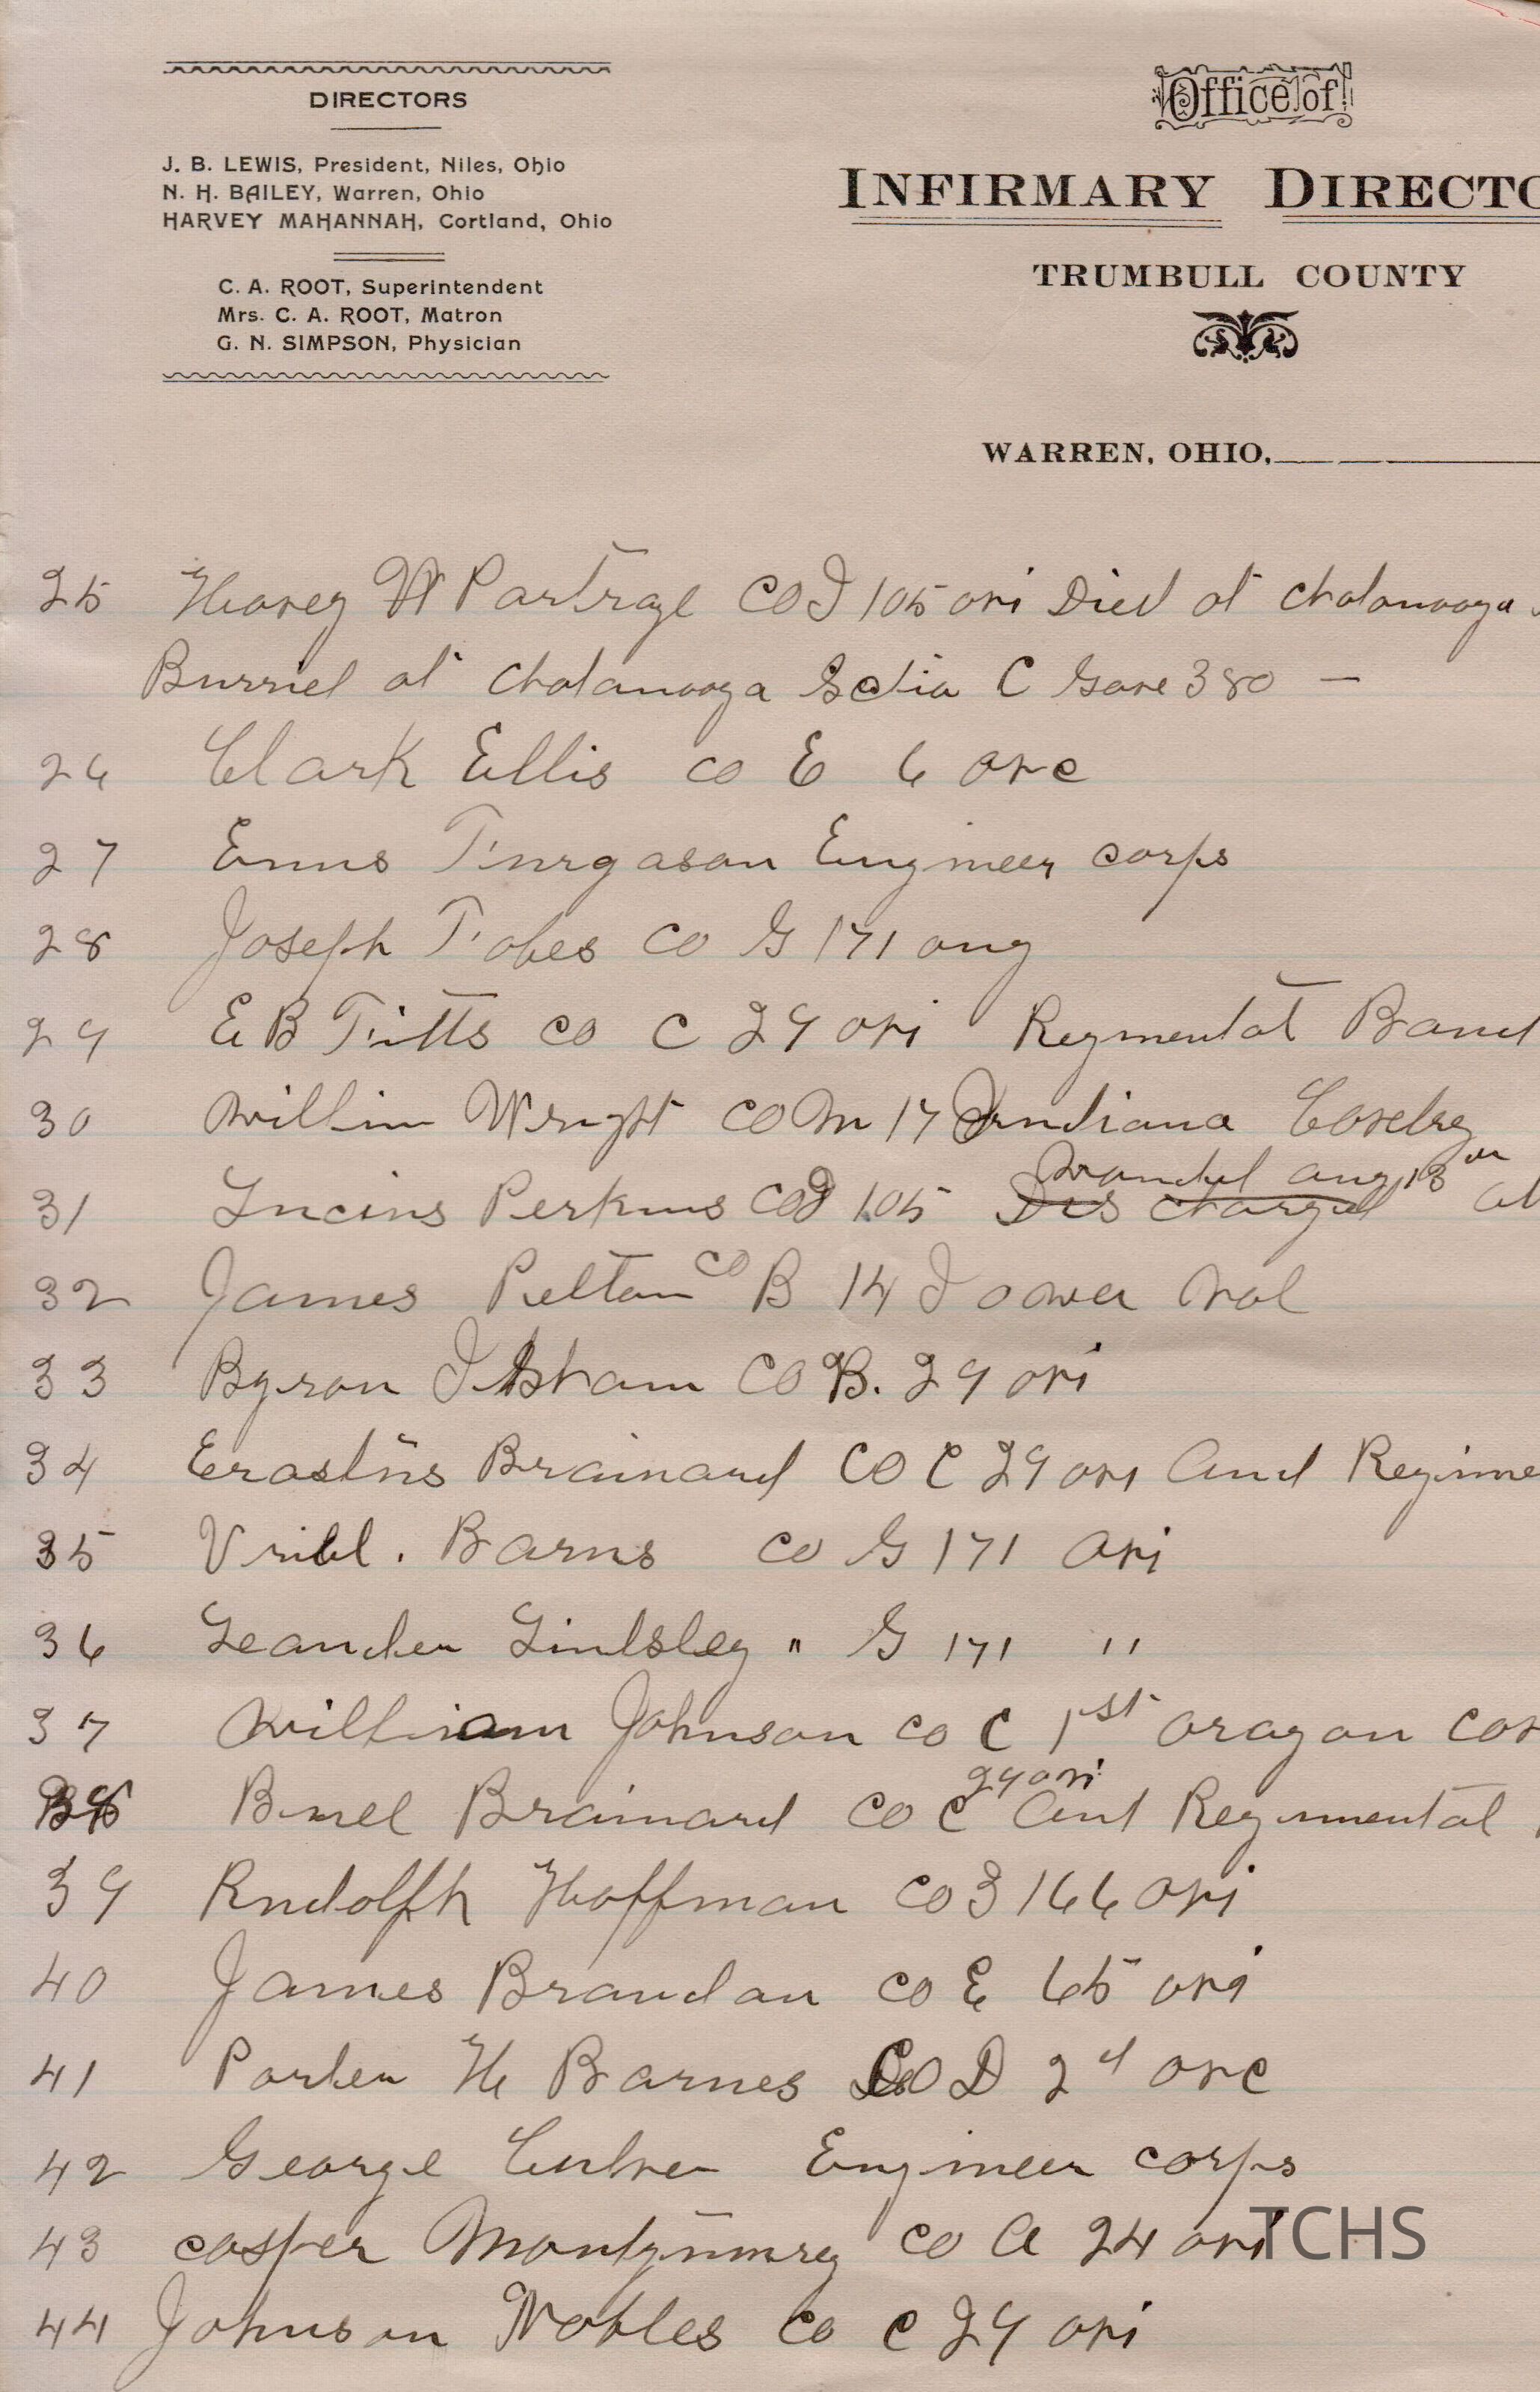 DIRECTORS
J. B. LEWIS, President, Niles, Ohio
N. H. BAILEY, Warren, Ohio
HARVEY MAHANNAH, Cortland, Ohio
C. A. ROOT, Superintendent
Mrs. C. A. ROOT, Matron
G. N. SIMPSON, Physician
Office of
INFIRMARY DIRECTO
TRUMBULL COUNTY
WARREN, OHIO,
25 Harvey W Partrage CO I 105 ovi Died at Chatanooga
Burried at Chatanooga Sctio C Gave 380 —
26 Clark Ellis co E 6 ovc
27 Ennis Furgason Engineer corps
28 Joseph Fobes CO G 171 ong
29 E B Fitts co C 29 ovi Regmental Band
30 William Wright CO M 17 Indiana Cavelry
31 Lucius Perkins CO I 105 Dis charged wounded aug 13 at
32 James Pelton co B 14 Iowa Vol
33 Byron Isham CO B. 29 ovi
34 Erastus Brainard CO C 29 ovi And Regime
35 Barns co G 171 ovi
36 Leander Lindsley " G 171 "
37 William Johnson co C 1st oragon cav
38 Burel Brainard CO C 29 ovi And Regimental
39 Rudolph Hoffman co 166 ovi
40 James Brandan co E 65 ovi
41 Parker H Barnes CO D 2d ovc
42 George Culver Engineer corps
43 casper Montgumrey co A 24 ovi
44 Johnson Nobles co C 29 ovi
TCHS